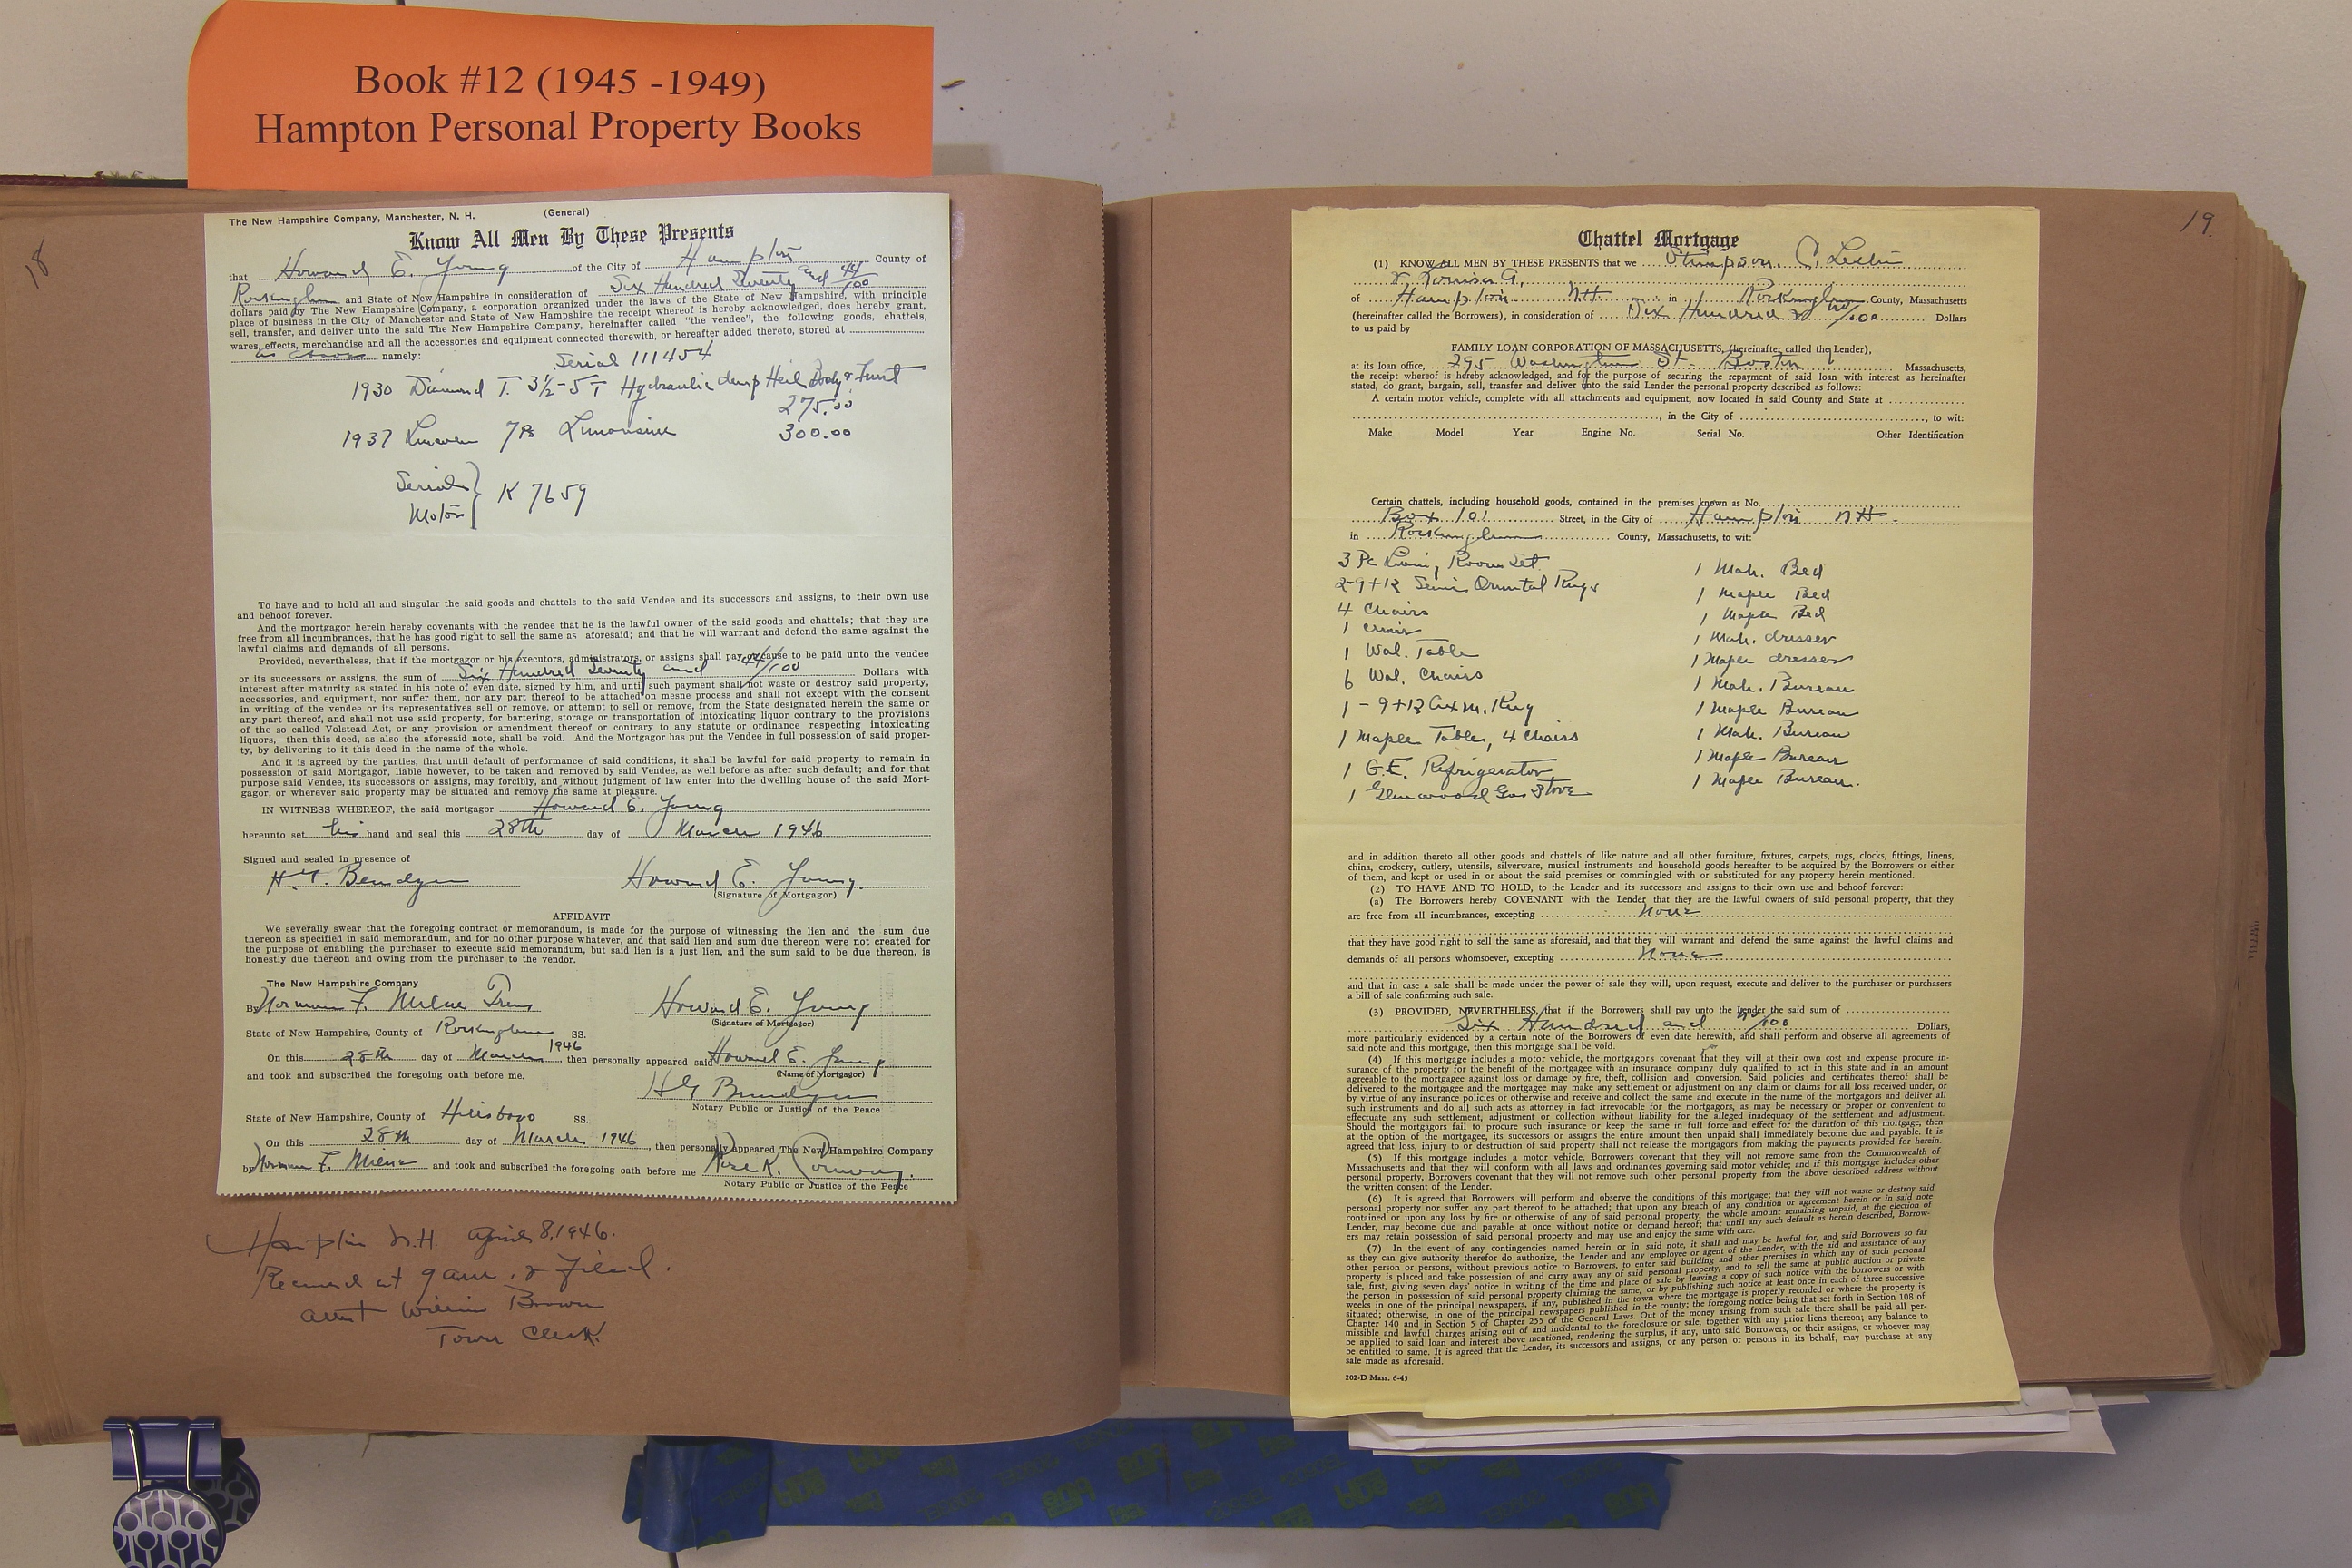 Book #12 (1945 -1949)
Hampton Personal Property Books
18
The New Hampshire Company, Manchester, N. H. (General)
Know All Men By These Presents
that Howard E. Young of the City of Hampton County of
Rockingham and State of New Hampshire in consideration of Six Hundred Seventy and 44/100
dollars paid by The New Hampshire Company, a corporation organized under the laws of the State of New Hampshire, with principle
place of business in the City of Manchester and State of New Hampshire the receipt whereof is hereby acknowledged, does hereby grant,
sell, transfer, and deliver unto the said The New Hampshire Company, hereinafter called "the vendee", the following goods, chattels,
wares, effects, merchandise and all the accessories and equipment connected therewith, or hereafter added thereto, stored at
as above namely:
Serial 111454
1930 Diamond T. 3½-5T Hydraulic dump Heil Body &
275.00
1937 7 Ps Limousine 300.00
Serial
Motor } K 7659
To have and to hold all and singular the said goods and chattels to the said Vendee and its successors and assigns, to their own use
and behoof forever.
And the mortgagor herein hereby covenants with the vendee that he is the lawful owner of the said goods and chattels; that they are
free from all incumbrances, that he has good right to sell the same as aforesaid; and that he will warrant and defend the same against the
lawful claims and demands of all persons.
Provided, nevertheless, that if the mortgagor or his executors, administrators, or assigns shall pay or cause to be paid unto the vendee
or its successors or assigns, the sum of Six Hundred Seventy and 44/100 Dollars with
interest after maturity as stated in his note of even date, signed by him, and until such payment shall not waste or destroy said property,
accessories, and equipment, nor suffer them, nor any part thereof to be attached on mesne process and shall not except with the consent
in writing of the vendee or its representatives sell or remove, or attempt to sell or remove, from the State designated herein the same or
any part thereof, and shall not use said property, for bartering, storage or transportation of intoxicating liquor contrary to the provisions
of the so called Volstead Act, or any provision or amendment thereof or contrary to any statute or ordinance respecting intoxicating
liquors,—then this deed, as also the aforesaid note, shall be void. And the Mortgagor has put the Vendee in full possession of said proper-
ty, by delivering to it this deed in the name of the whole.
And it is agreed by the parties, that until default of performance of said conditions, it shall be lawful for said property to remain in
possession of said Mortgagor, liable however, to be taken and removed by said Vendee, as well before as after such default; and for that
purpose said Vendee, its successors or assigns, may forcibly, and without judgment of law enter into the dwelling house of the said Mort-
gagor, or wherever said property may be situated and remove the same at pleasure.
IN WITNESS WHEREOF, the said mortgagor Howard E. Young
hereunto set his hand and seal this 28th day of March 1946
Signed and sealed in presence of
Howard E. Young.
(Signature of Mortgagor)
AFFIDAVIT
We severally swear that the foregoing contract or memorandum, is made for the purpose of witnessing the lien and the sum due
thereon as specified in said memorandum, and for no other purpose whatever, and that said lien and sum due thereon were not created for
the purpose of enabling the purchaser to execute said memorandum, but said lien is a just lien, and the sum said to be due thereon, is
honestly due thereon and owing from the purchaser to the vendor.
The New Hampshire Company
By Norman F. Milne Treas Howard E. Young
(Signature of Mortgagor)
State of New Hampshire, County of Rockingham SS.
On this 28th day of March 1946, then personally appeared said Howard E. Young
(Name of Mortgagor)
and took and subscribed the foregoing oath before me.
Notary Public or Justice of the Peace
State of New Hampshire, County of Hillsboro SS.
On this 28th day of March. 1946, then personally appeared The New Hampshire Company
by Norman F. Milne and took and subscribed the foregoing oath before me Rose K. Conway.
Notary Public or Justice of the Peace
Hampton N.H. April 8, 1946.
Received at 9 am. & Filed.
attest William Brown
Town Clerk.
19.
Chattel Mortgage
(1) KNOW ALL MEN BY THESE PRESENTS that we Stimpson. C. Leslie
of Hampton N.H. in Rockingham County, Massachusetts
(hereinafter called the Borrowers), in consideration of Six Hundred & no/100 Dollars
to us paid by
FAMILY LOAN CORPORATION OF MASSACHUSETTS, (hereinafter called the Lender),
at its loan office, 295 Washington St. Boston Massachusetts,
the receipt whereof is hereby acknowledged, and for the purpose of securing the repayment of said loan with interest as hereinafter
stated, do grant, bargain, sell, transfer and deliver unto the said Lender the personal property described as follows:
A certain motor vehicle, complete with all attachments and equipment, now located in said County and State at
, in the City of , to wit:
Make Model Year Engine No. Serial No. Other Identification
Certain chattels, including household goods, contained in the premises known as No.
Box 101 Street, in the City of Hampton N.H.
in Rockingham County, Massachusetts, to wit:
3 Pc Living Room Set 1 Mah. Bed
2-9+12 Semi Oriental Rugs 1 Maple Bed
4 Chairs 1 Maple Bed
1 1 Mah. dresser
1 Wal. Table 1 Maple dresser
6 Wal. Chairs 1 Mah. Bureau
1 - 9+12 Axm. Rug 1 Maple Bureau
1 Maple Table, 4 Chairs 1 Mah. Bureau
1 G.E. Refrigerator 1 Maple Bureau
1 Glenwood Gas Stove 1 Maple Bureau.
and in addition thereto all other goods and chattels of like nature and all other furniture, fixtures, carpets, rugs, clocks, fittings, linens,
china, crockery, cutlery, utensils, silverware, musical instruments and household goods hereafter to be acquired by the Borrowers or either
of them, and kept or used in or about the said premises or commingled with or substituted for any property herein mentioned.
(2) TO HAVE AND TO HOLD, to the Lender and its successors and assigns to their own use and behoof forever:
(a) The Borrowers hereby COVENANT with the Lender that they are the lawful owners of said personal property, that they
are free from all incumbrances, excepting None
that they have good right to sell the same as aforesaid, and that they will warrant and defend the same against the lawful claims and
demands of all persons whomsoever, excepting None
and that in case a sale shall be made under the power of sale they will, upon request, execute and deliver to the purchaser or purchasers
a bill of sale confirming such sale.
(3) PROVIDED, NEVERTHELESS, that if the Borrowers shall pay unto the Lender the said sum of
Six Hundred and no/100 Dollars,
more particularly evidenced by a certain note of the Borrowers of even date herewith, and shall perform and observe all agreements of
said note and this mortgage, then this mortgage shall be void.
(4) If this mortgage includes a motor vehicle, the mortgagors covenant that they will at their own cost and expense procure in-
surance of the property for the benefit of the mortgagee with an insurance company duly qualified to act in this state and in an amount
agreeable to the mortgagee against loss or damage by fire, theft, collision and conversion. Said policies and certificates thereof shall be
delivered to the mortgagee and the mortgagee may make any settlement or adjustment on any claim or claims for all loss received under, or
by virtue of any insurance policies or otherwise and receive and collect the same and execute in the name of the mortgagors and deliver all
such instruments and do all such acts as attorney in fact irrevocable for the mortgagors, as may be necessary or proper or convenient to
effectuate any such settlement, adjustment or collection without liability for the alleged inadequacy of the settlement and adjustment.
Should the mortgagors fail to procure such insurance or keep the same in full force and effect for the duration of this mortgage, then
at the option of the mortgagee, its successors or assigns the entire amount then unpaid shall immediately become due and payable. It is
agreed that loss, injury to or destruction of said property shall not release the mortgagors from making the payments provided for herein.
(5) If this mortgage includes a motor vehicle, Borrowers covenant that they will not remove same from the Commonwealth of
Massachusetts and that they will conform with all laws and ordinances governing said motor vehicle; and if this mortgage includes other
personal property, Borrowers covenant that they will not remove such other personal property from the above described address without
the written consent of the Lender.
(6) It is agreed that Borrowers will perform and observe the conditions of this mortgage; that they will not waste or destroy said
personal property nor suffer any part thereof to be attached; that upon any breach of any condition or agreement herein or in said note
contained or upon any loss by fire or otherwise of any of said personal property, the whole amount remaining unpaid, at the election of
Lender, may become due and payable at once without notice or demand hereof; that until any such default as herein described, Borrow-
ers may retain possession of said personal property and may use and enjoy the same with care.
(7) In the event of any contingencies named herein or in said note, it shall and may be lawful for, and said Borrowers so far
as they can give authority therefor do authorize, the Lender and any employee or agent of the Lender, with the aid and assistance of any
other person or persons, without previous notice to Borrowers, to enter said building and other premises in which any of such personal
property is placed and take possession of and carry away any of said personal property, and to sell the same at public auction or private
sale, first, giving seven days' notice in writing of the time and place of sale by leaving a copy of such notice with the borrowers or with
the person in possession of said personal property claiming the same, or by publishing such notice at least once in each of three successive
weeks in one of the principal newspapers, if any, published in the town where the mortgage is properly recorded or where the property is
situated; otherwise, in one of the principal newspapers published in the county; the foregoing notice being that set forth in Section 108 of
Chapter 140 and in Section 5 of Chapter 255 of the General Laws. Out of the money arising from such sale there shall be paid all per-
missible and lawful charges arising out of and incidental to the foreclosure or sale, together with any prior liens thereon; any balance to
be applied to said loan and interest above mentioned, rendering the surplus, if any, unto said Borrowers, or their assigns, or whoever may
be entitled to same. It is agreed that the Lender, its successors and assigns, or any person or persons in its behalf, may purchase at any
sale made as aforesaid.
202-D Mass. 6-45